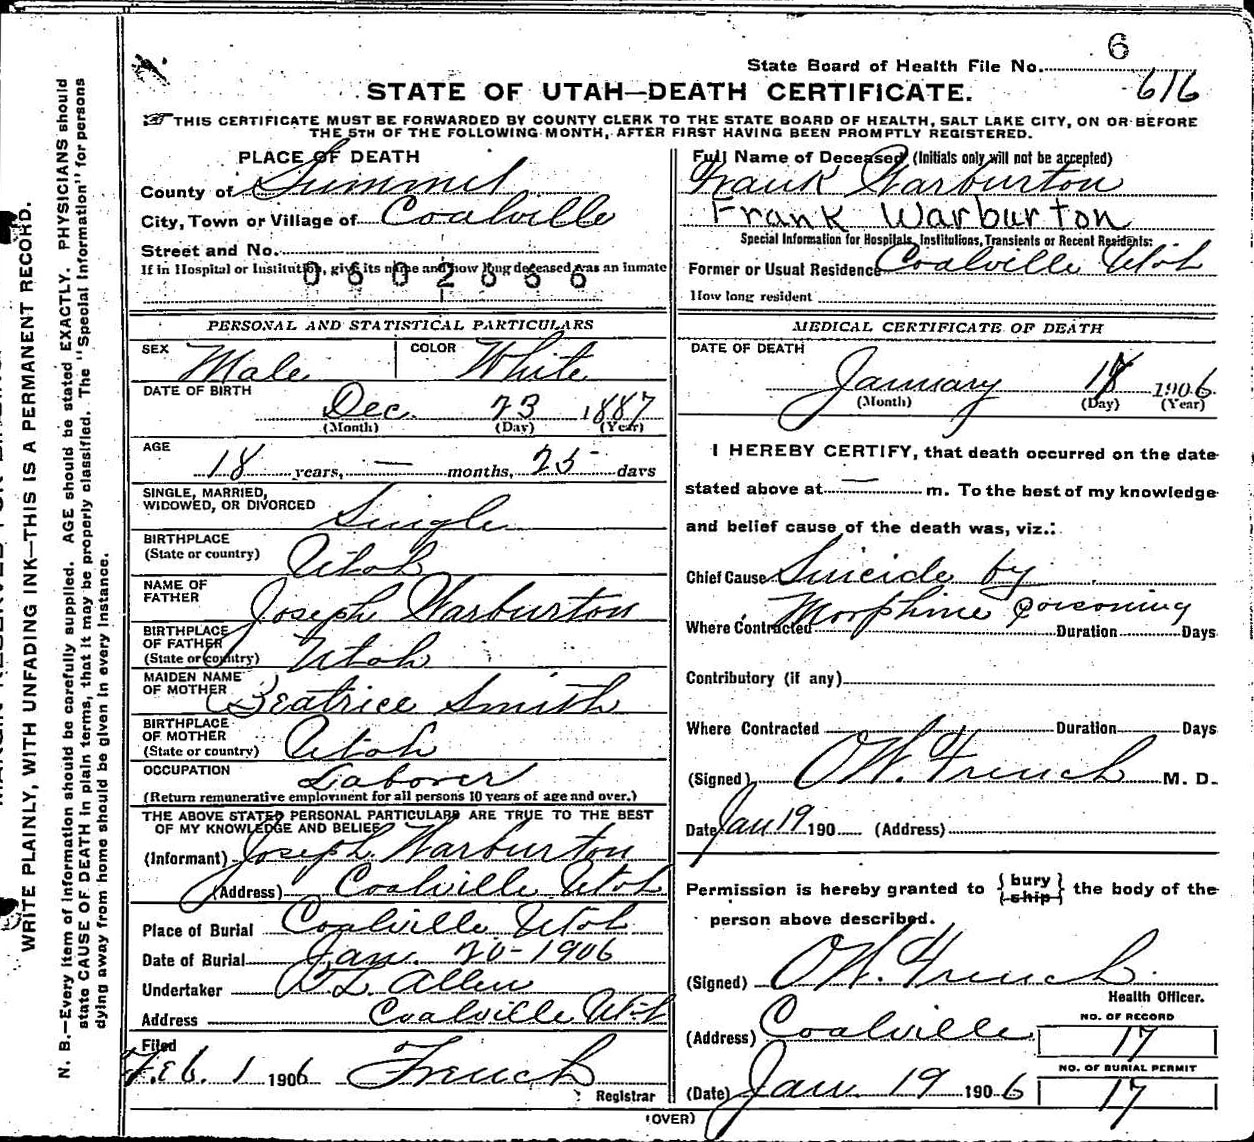 6
State Board of Health File No.
616
STATE OF UTAH—DEATH CERTIFICATE.
THIS CERTIFICATE MUST BE FORWARDED BY COUNTY CLERK TO THE STATE BOARD OF HEALTH, SALT LAKE CITY, ON OR BEFORE
THE 5TH OF THE FOLLOWING MONTH, AFTER FIRST HAVING BEEN PROMPTLY REGISTERED.
PLACE OF DEATH
County of Summit
City, Town or Village of Coalville
Street and No.
If in Hospital or Institution, give its name and how long deceased was an inmate
0602666
PERSONAL AND STATISTICAL PARTICULARS
SEX Male COLOR White
DATE OF BIRTH
Dec. 23 1887
(Month) (Day) (Year)
AGE
18 years, — months, 25 days
SINGLE, MARRIED,
WIDOWED, OR DIVORCED Single
BIRTHPLACE
(State or country) Utah
NAME OF
FATHER Joseph Warburton
BIRTHPLACE
OF FATHER
(State or country) Utah
MAIDEN NAME
OF MOTHER Beatrice Smith
BIRTHPLACE
OF MOTHER
(State or country) Utah
OCCUPATION Laborer
(Return remunerative employment for all persons 10 years of age and over.)
THE ABOVE STATED PERSONAL PARTICULARS ARE TRUE TO THE BEST
OF MY KNOWLEDGE AND BELIEF
(Informant) Joseph Warburton
(Address) Coalville Utah
Place of Burial Coalville Utah
Date of Burial Jan. 20-1906
Undertaker Allen
Address Coalville Utah
Filed
Feb. 1 1906 French
Registrar
Full Name of Deceased (Initials only will not be accepted)
Frank Warburton
Frank Warburton
Special Information for Hospitals, Institutions, Transients or Recent Residents:
Former or Usual Residence Coalville Utah
How long resident
MEDICAL CERTIFICATE OF DEATH
DATE OF DEATH
January 18 1906
(Month) (Day) (Year)
I HEREBY CERTIFY, that death occurred on the date
stated above at — m. To the best of my knowledge
and belief cause of the death was, viz.:
Chief Cause Suicide by
Morphine Poisoning
Where Contracted Duration Days
Contributory (if any)
Where Contracted Duration Days
(Signed) O.W. French M. D.
Date Jan 19 190 (Address)
Permission is hereby granted to { bury
ship } the body of the
person above described.
(Signed) O.W. French
Health Officer.
(Address) Coalville
NO. OF RECORD
17
NO. OF BURIAL PERMIT
(Date) Jan. 19 1906 17
(OVER)
WRITE PLAINLY, WITH UNFADING INK—THIS IS A PERMANENT RECORD.
N. B.—Every item of information should be carefully supplied. AGE should be stated EXACTLY. PHYSICIANS should
state CAUSE OF DEATH in plain terms, that it may be properly classified. The "Special Information" for persons
dying away from home should be given in every instance.